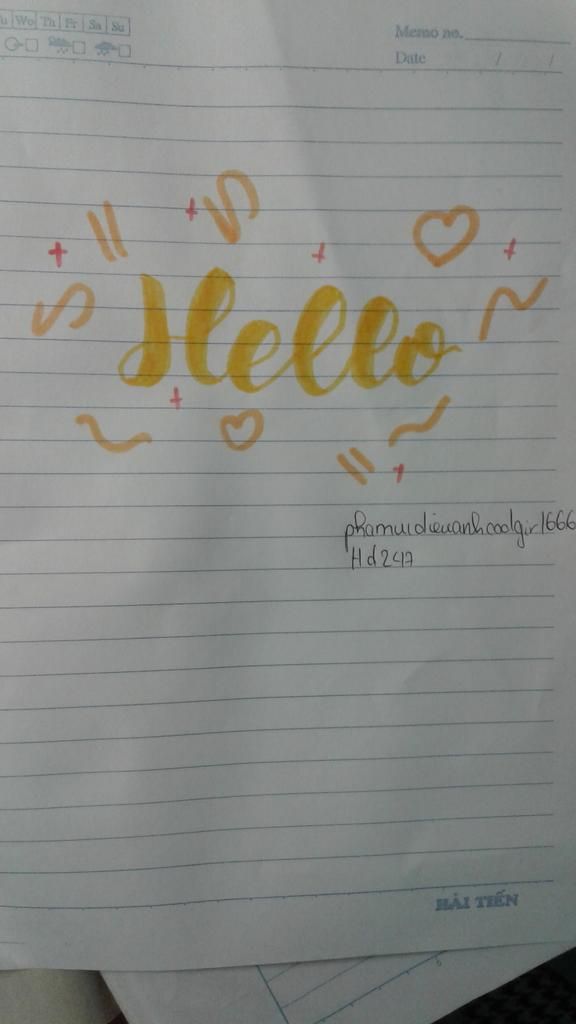 Wo Th Fr Sa Su
Memo no.
Date / /
Hello
phamuidieuanhcoolgirl666
Hd247
HẢI TIẾN